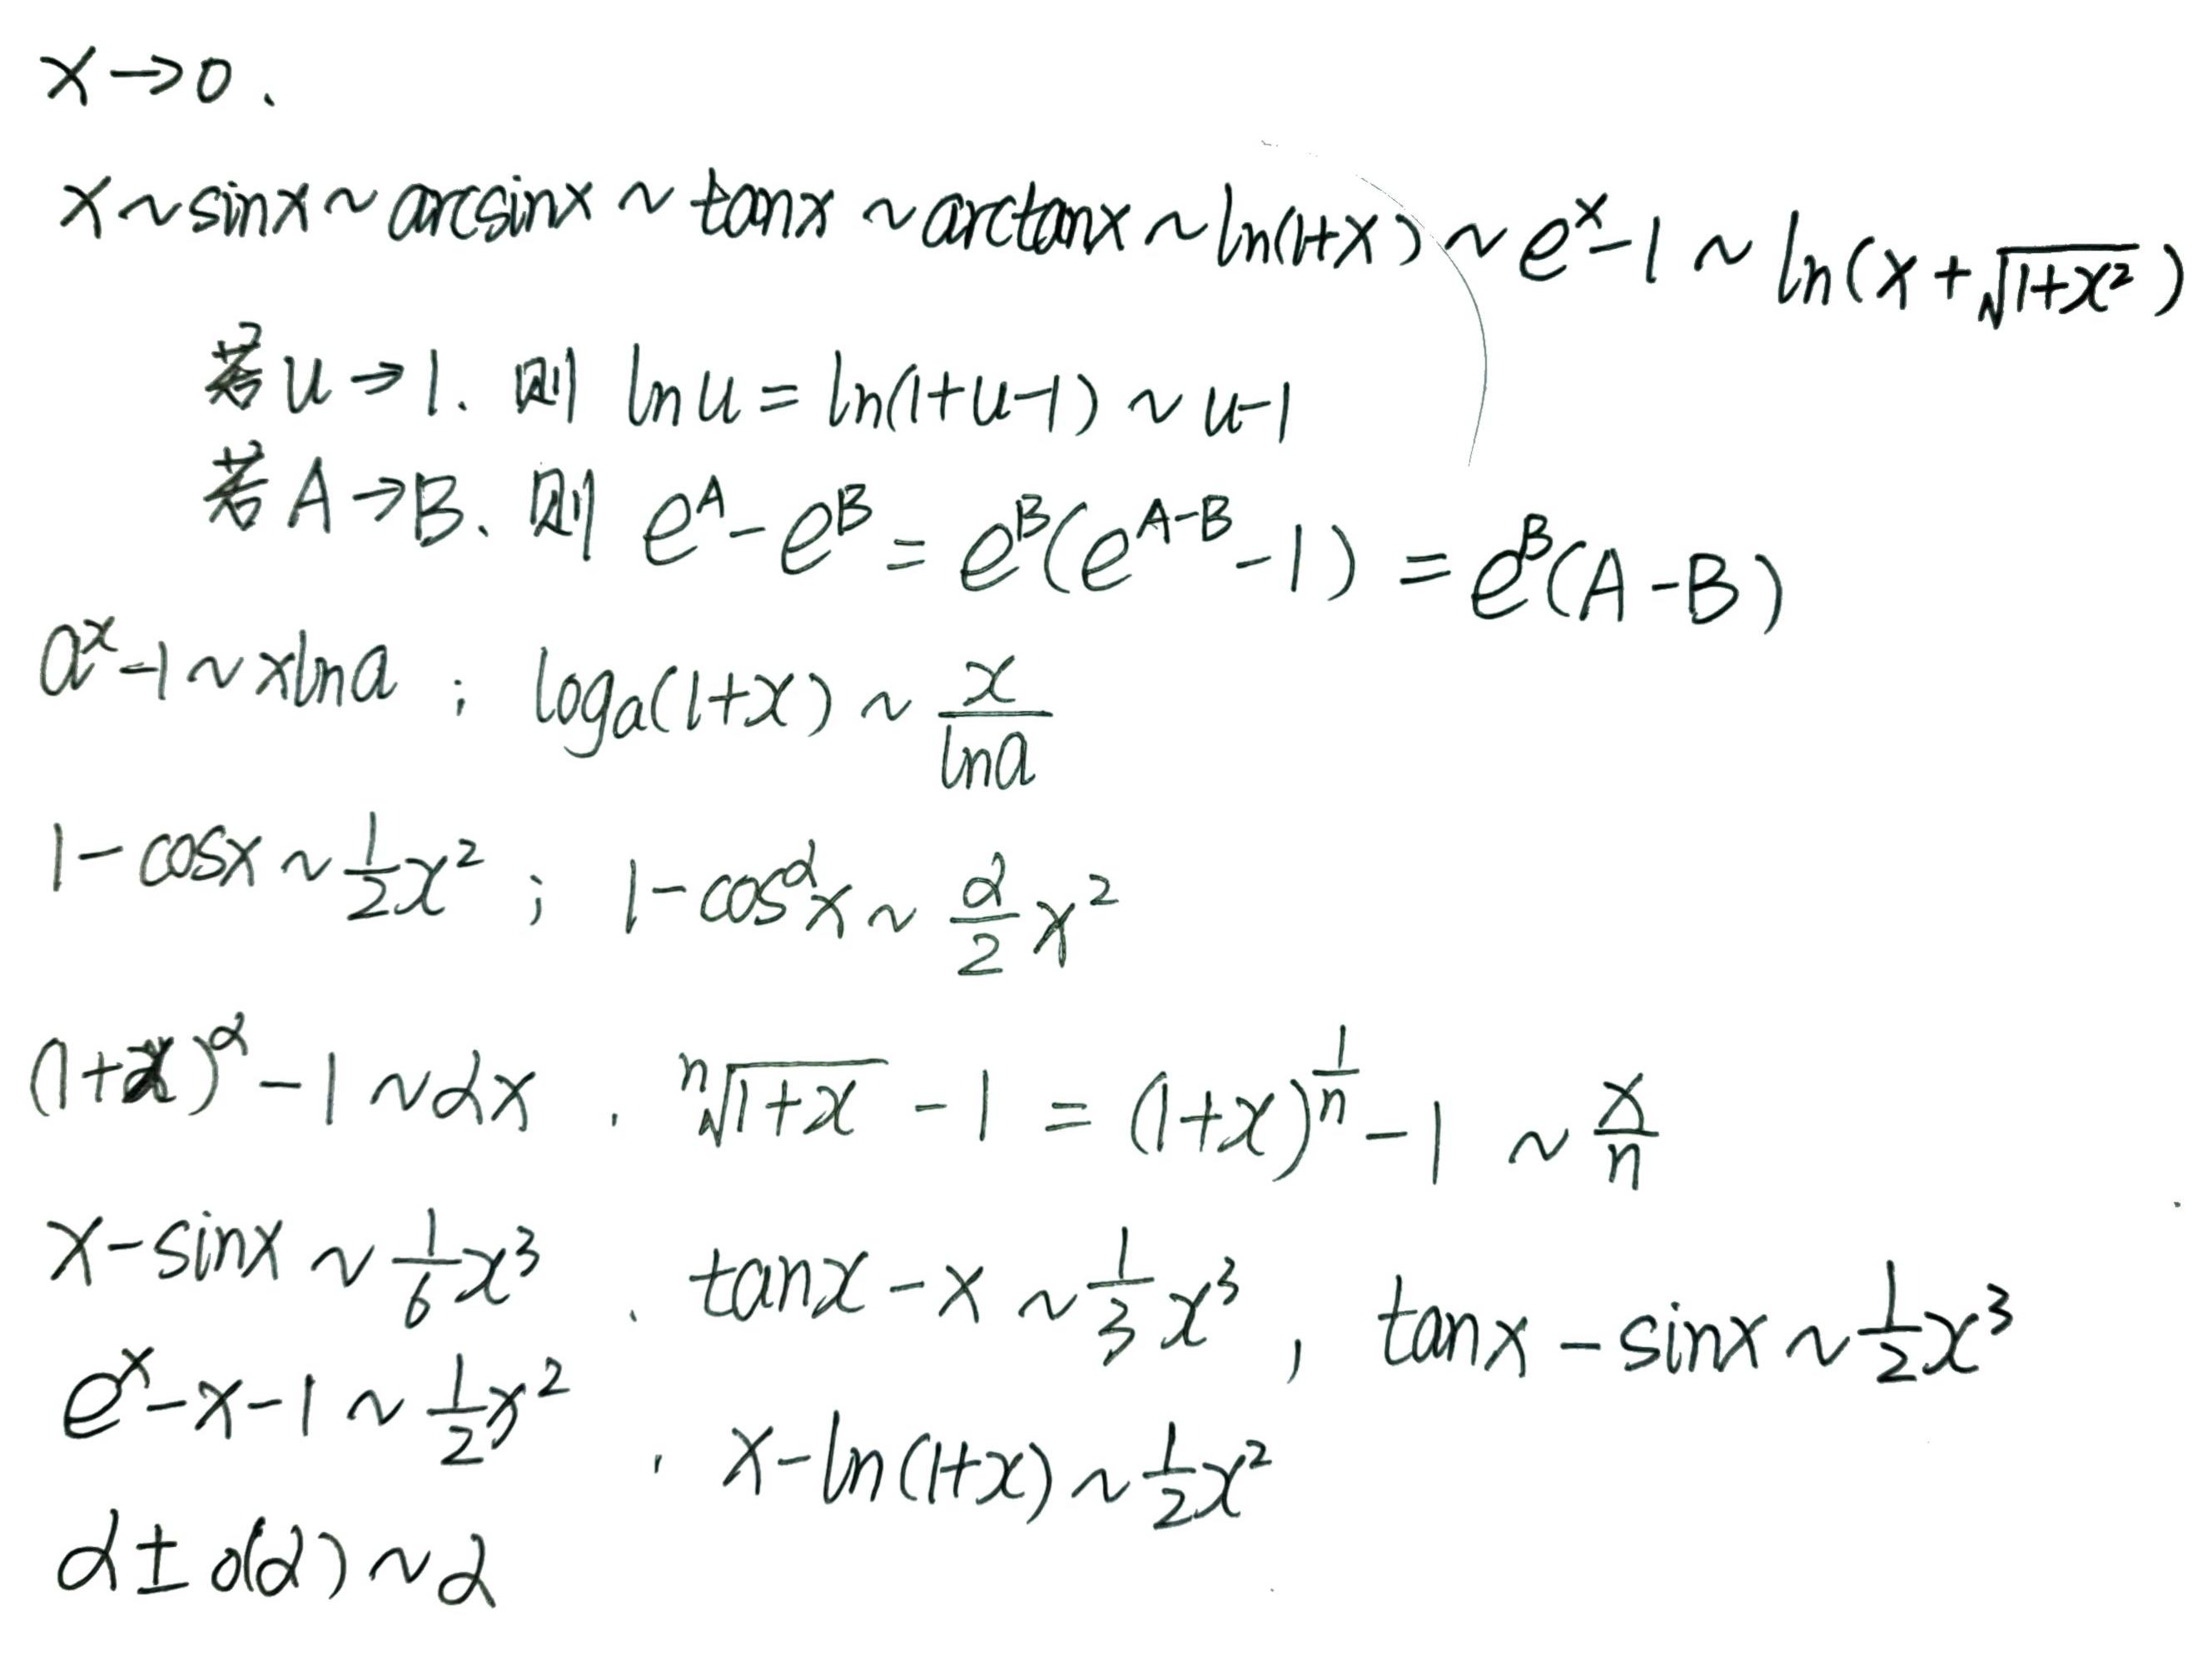 x→0、
x~sinx~arcsinx~tanx~arctanx~ln(1+x)~eˣ-1~ln(x+√(1+x²))
若u→1、则 lnu=ln(1+u-1)~u-1
若A→B、则 e^A-e^B=e^B(e^(A-B)-1)=e^B(A-B)
aˣ-1~xlna ; logₐ(1+x)~x/lna
1-cosx~½x² ; 1-cos^αx~α/2 x²
(1+x)^α-1~αx . ⁿ√(1+x)-1=(1+x)^(1/n)-1~x/n
x-sinx~1/6 x³ 、 tanx-x~1/3 x³ , tanx-sinx~½x³
eˣ-x-1~½x² , x-ln(1+x)~½x²
α±o(α)~α